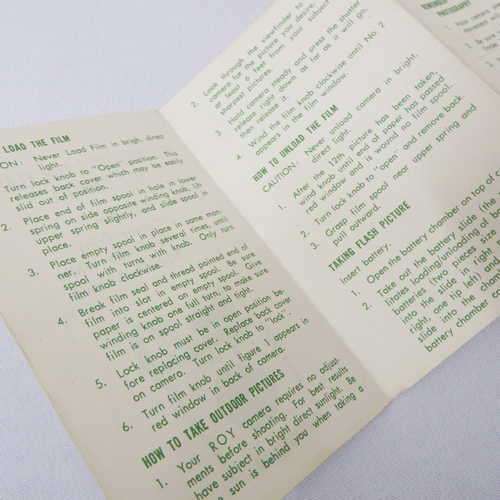 LOAD THE FILM
ON: Never Load Film in brigh direc
light.
Turn lock knob to "Open" position. This
releases back cover which may be easily
slid out of position.
2. Place end of film spool in hole in lower
spring on side opposite winding knob. Lift
upper spring slightly, and slide spool in
place.
3. Place empty spool in place in same man-
ner. Turn film knob several times, until
spool with turns with knob. Only turn
film knob clockwise.
4. Break film seal and thread pointed end of
film into slot in empty spool. Be sure
paper is centered on empty spool. Give
winding knob one full turn, to make sure
film is on spool straight and tight.
5. Lock knob must be in open position be-
fore replacing cover. Replace back cover
on camera. Turn lock knob to "lock".
6. Turn film knob until figure 1 appears in
red window in back of camera.
HOW TO TAKE OUTDOOR PICTURES
1. Your ROY camera requires no adjust-
ments before shooting. For best results
have subject in bright direct sunlight. Be
sun is behind you when taking a
Look through the viewfinder to
camera for the picture you desire.
at least 6 feet from your subject
sharpest pictures.
2.
3. Hold camera steady and press the shutter
release right down as far as it will go,
then release it.
4. Wind the film knob clockwise until No. 2
appears in the film window.
HOW TO UNLOAD THE FILM
CAUTION: Never unload camera in bright,
direct light.
1. After the 12th picture has been taken,
wind knob until end of paper has passed
red window and is wound no film spool.
2. Turn lock knob to "open" and remove back
3. Grasp film spool near upper spring and
pull outward.
TAKING FLASH PICTURE
Insert battery.
1. Open the battery chamber on top of c
2. Take out the battery slide (the
litates loading/unloading of
batteries (two pieces size
into the slide in the
right, one tip left and
slide into the chamber
battery chamber